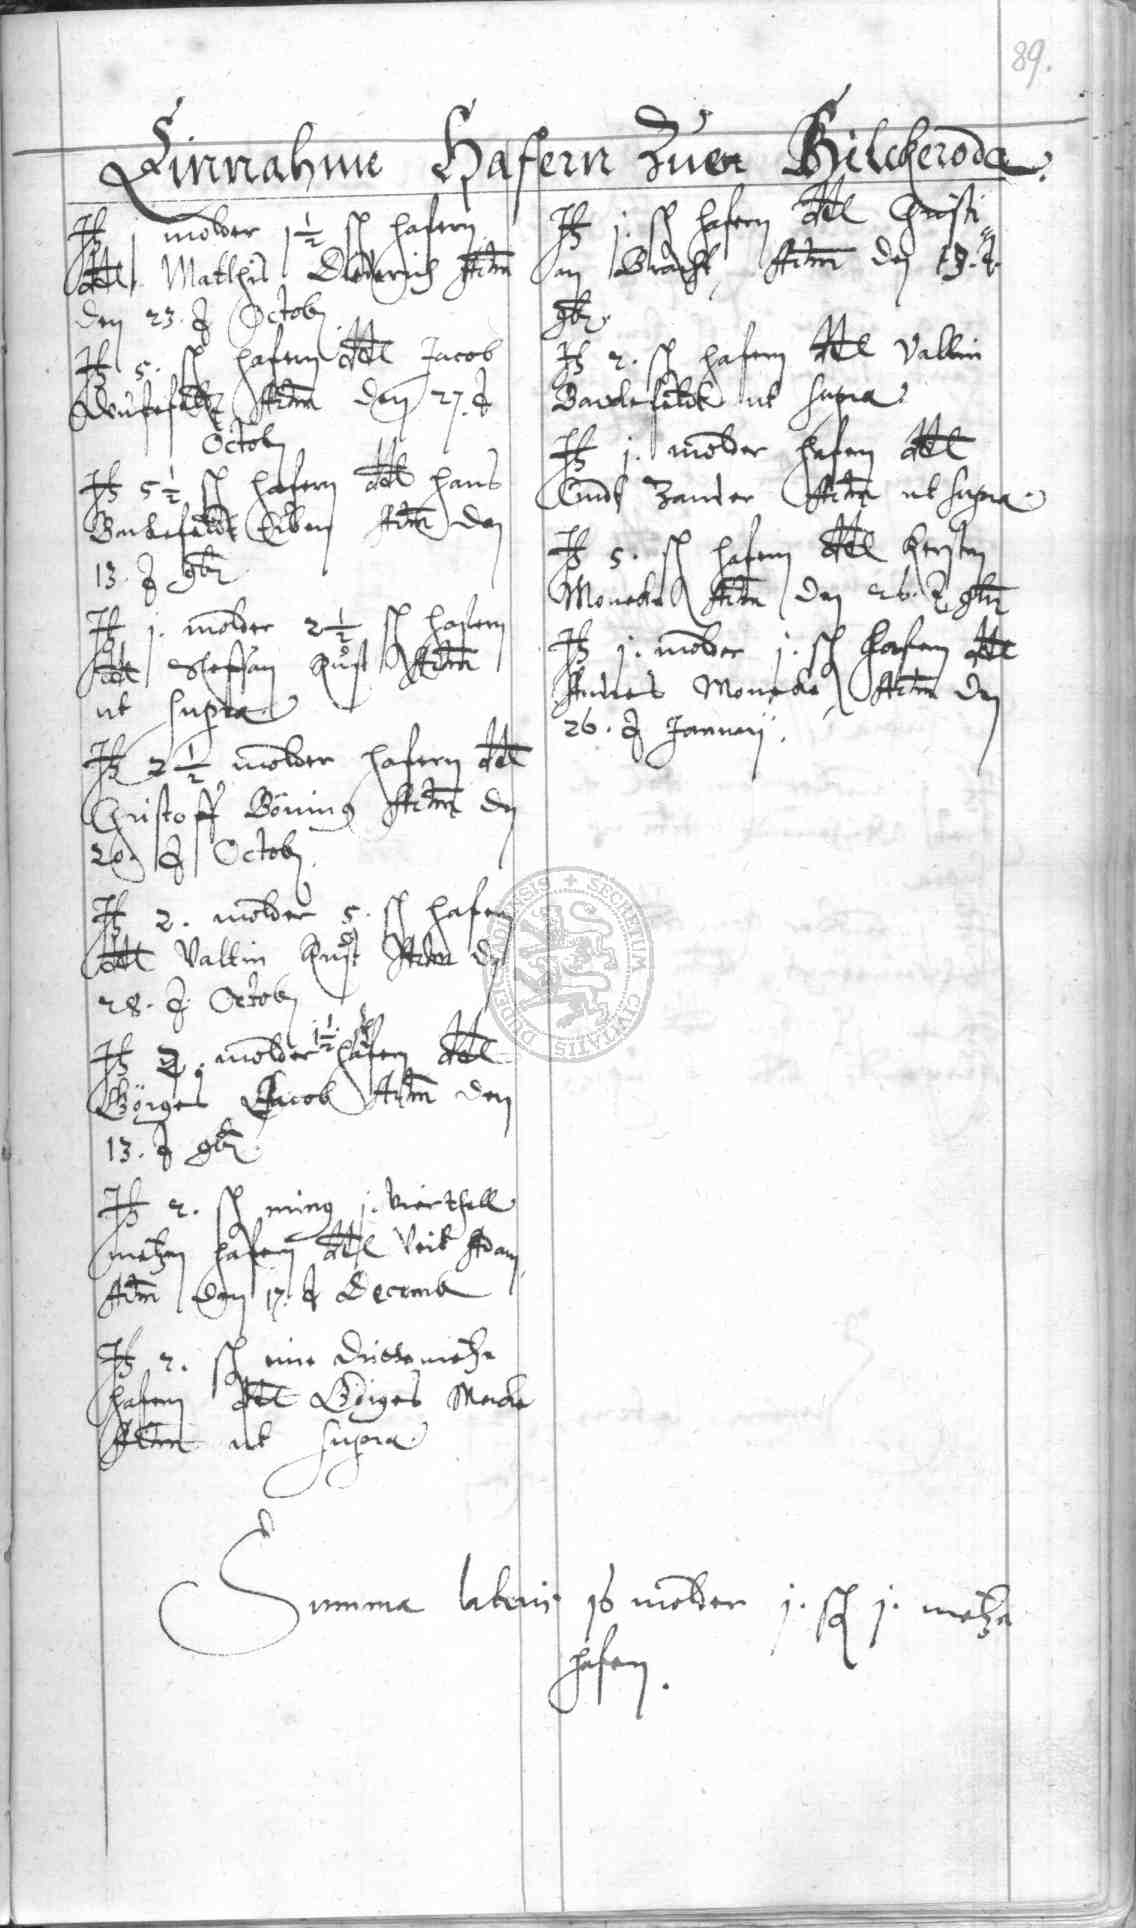 89.
Einnahme Hafern Zuer Bilckeroda
It 1 molder 1 1/2 sch hafern
dedt Mathis Diederich Actum
den 23. Octob
It 5. sch hafern dedt Jacob
Actum den 27.
Octob
It 5 1/2 sch hafern dedt hans
Actum den
13. 9br
It j. molder 2 1/2 sch hafern
dedt Steffan Kust Actum
ut supra
It 2 1/2 molder hafern dedt
Christoff Böning Actum den
20. Octob
It 2. molder 5. sch hafern
dedt Valtin Kust Actum den
28. Octob
It 2. molder 1 1/2 sch hafern dedt
Görges Jacob Actum den
13. 9br
It 2. sch ming j. Viertell
metzen hafern dedt Veit Adam
Actum den 17. Decemb
It 2. sch eine metze
hafern dedt Görges Mecke
Actum ut supra
It j. sch hafern dedt Christi
an Bracht Actum den 13.
9br.
It 2. sch hafern dedt Valtin
ut supra
It j. molder hafern dedt
Curdt Zander Actum ut supra
It 5. sch hafern dedt Kersten
Monecke Actum den 26. 9br
It j. molder j. sch hafern dedt
Andres Monecke Actum den
26. Januarij.
Summa lateris 16 molder j. sch j. metze
hafern.
SECRETUM CIVITATIS DUDERSTADENSIS